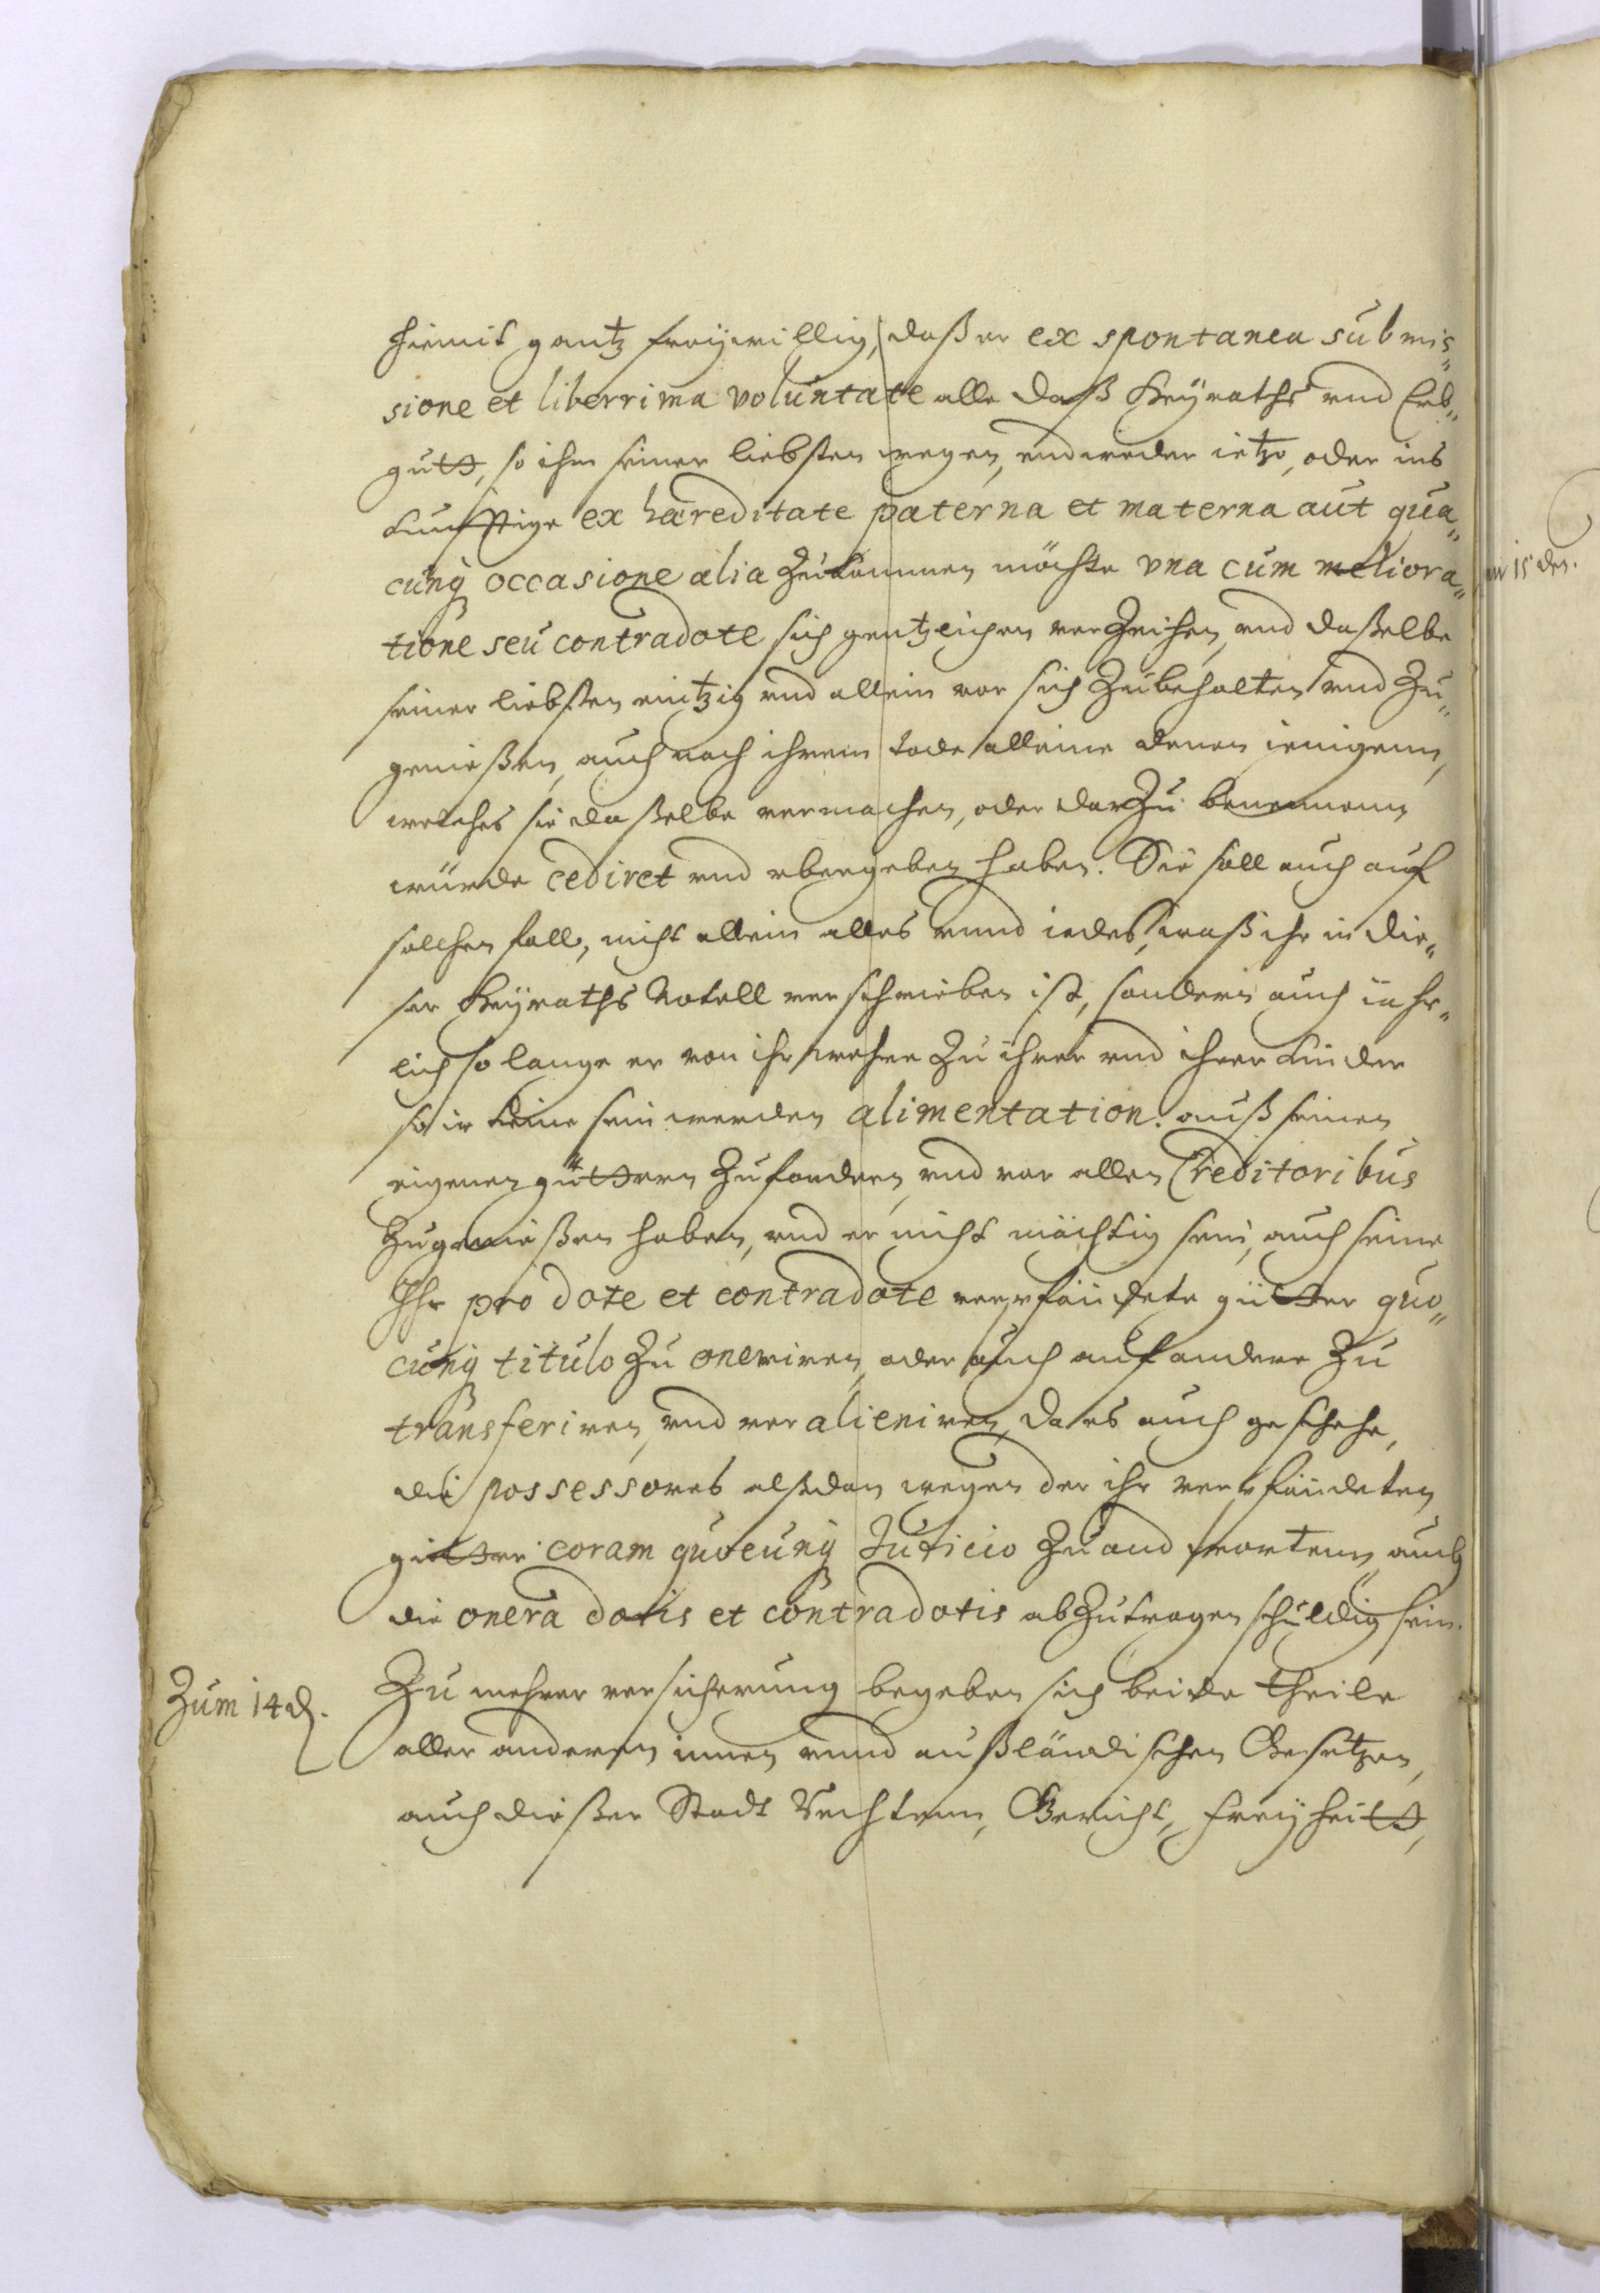 hiemit gantz freÿwillig, daß er ex spontanea submis„
sione et liberrima voluntate alle daß Heÿraths vnd Erb„
gutt, so ihm seiner liebsten wegen, endweder ietzo, oder ins
kunfftige ex hæreditate paterna et materna aut qua„
cunq occasione alia Zukommen möchte vna cum meliora„
tione seu contradote sich gentzlichen verZeihen, vnd daßelbe
seiner liebsten eintzig vnd allein vor sich Zubehalten vnd Zu„
genießen, auch nach ihrem tode alleine denen ienigenn,
welches sie daßelbe vermachen, oder darZu benennenn
würde cediret vnd vbergeben haben. Sie soll auch auf
sollchen fall, nicht allein alles vnnd iedes, waß ihr in die„
ser Heÿraths Notell verschrieben ist, sondern auch iähr„
lich so lange er von ihr wehre Zu ihrer vnd ihrer kinder
so ie keine sein werden alimentation. auß seinen
eigenen güttern Zufordern, vnd vor allen Creditoribus
Zugenießen haben, vnd er nicht mächtig sein, auch seine
Ihr pro dote et contradote verpfändete gütter quo„
cunq titulo Zu oneriren, oder auch auf andere Zu
transferiren, vnd veralieniren, da es auch geschehe,
die possessores alßdan wegen der ihr verpfändeten
gütter coram quocunq Iudicio Zu andworten, auch
die onera dotis et contradotis abZutragen schuldig sein.
Zum 14 d.
Zu mehrer versicherung begeben sich beide theile
aller anderen innen vnnd außländischen Gesetzen,
auch dießer Stadt Rechtenn, Gericht, freÿheitt,
15 den.